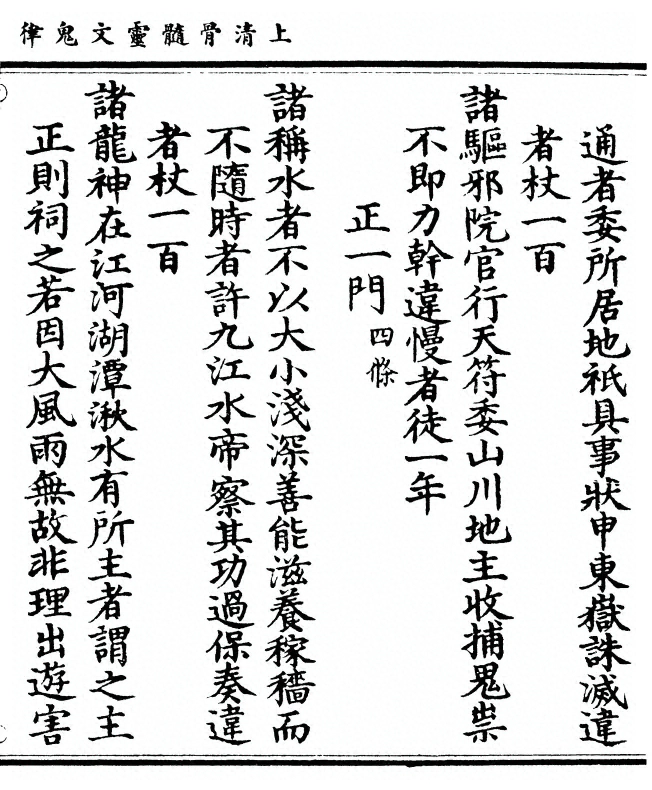 上清骨髓靈文鬼律
通者委所居地祇具事狀申東嶽誅滅違
者杖一百
諸驅邪院官行天符委山川地主收捕鬼祟
不即力幹違慢者徒一年
正一門四條
諸稱水者不以大小淺深善能滋養稼穡而
不隨時者許九江水帝察其功過保奏違
者杖一百
諸龍神在江河湖潭湫水有所主者謂之主
正則祠之若因大風雨無故非理出遊害